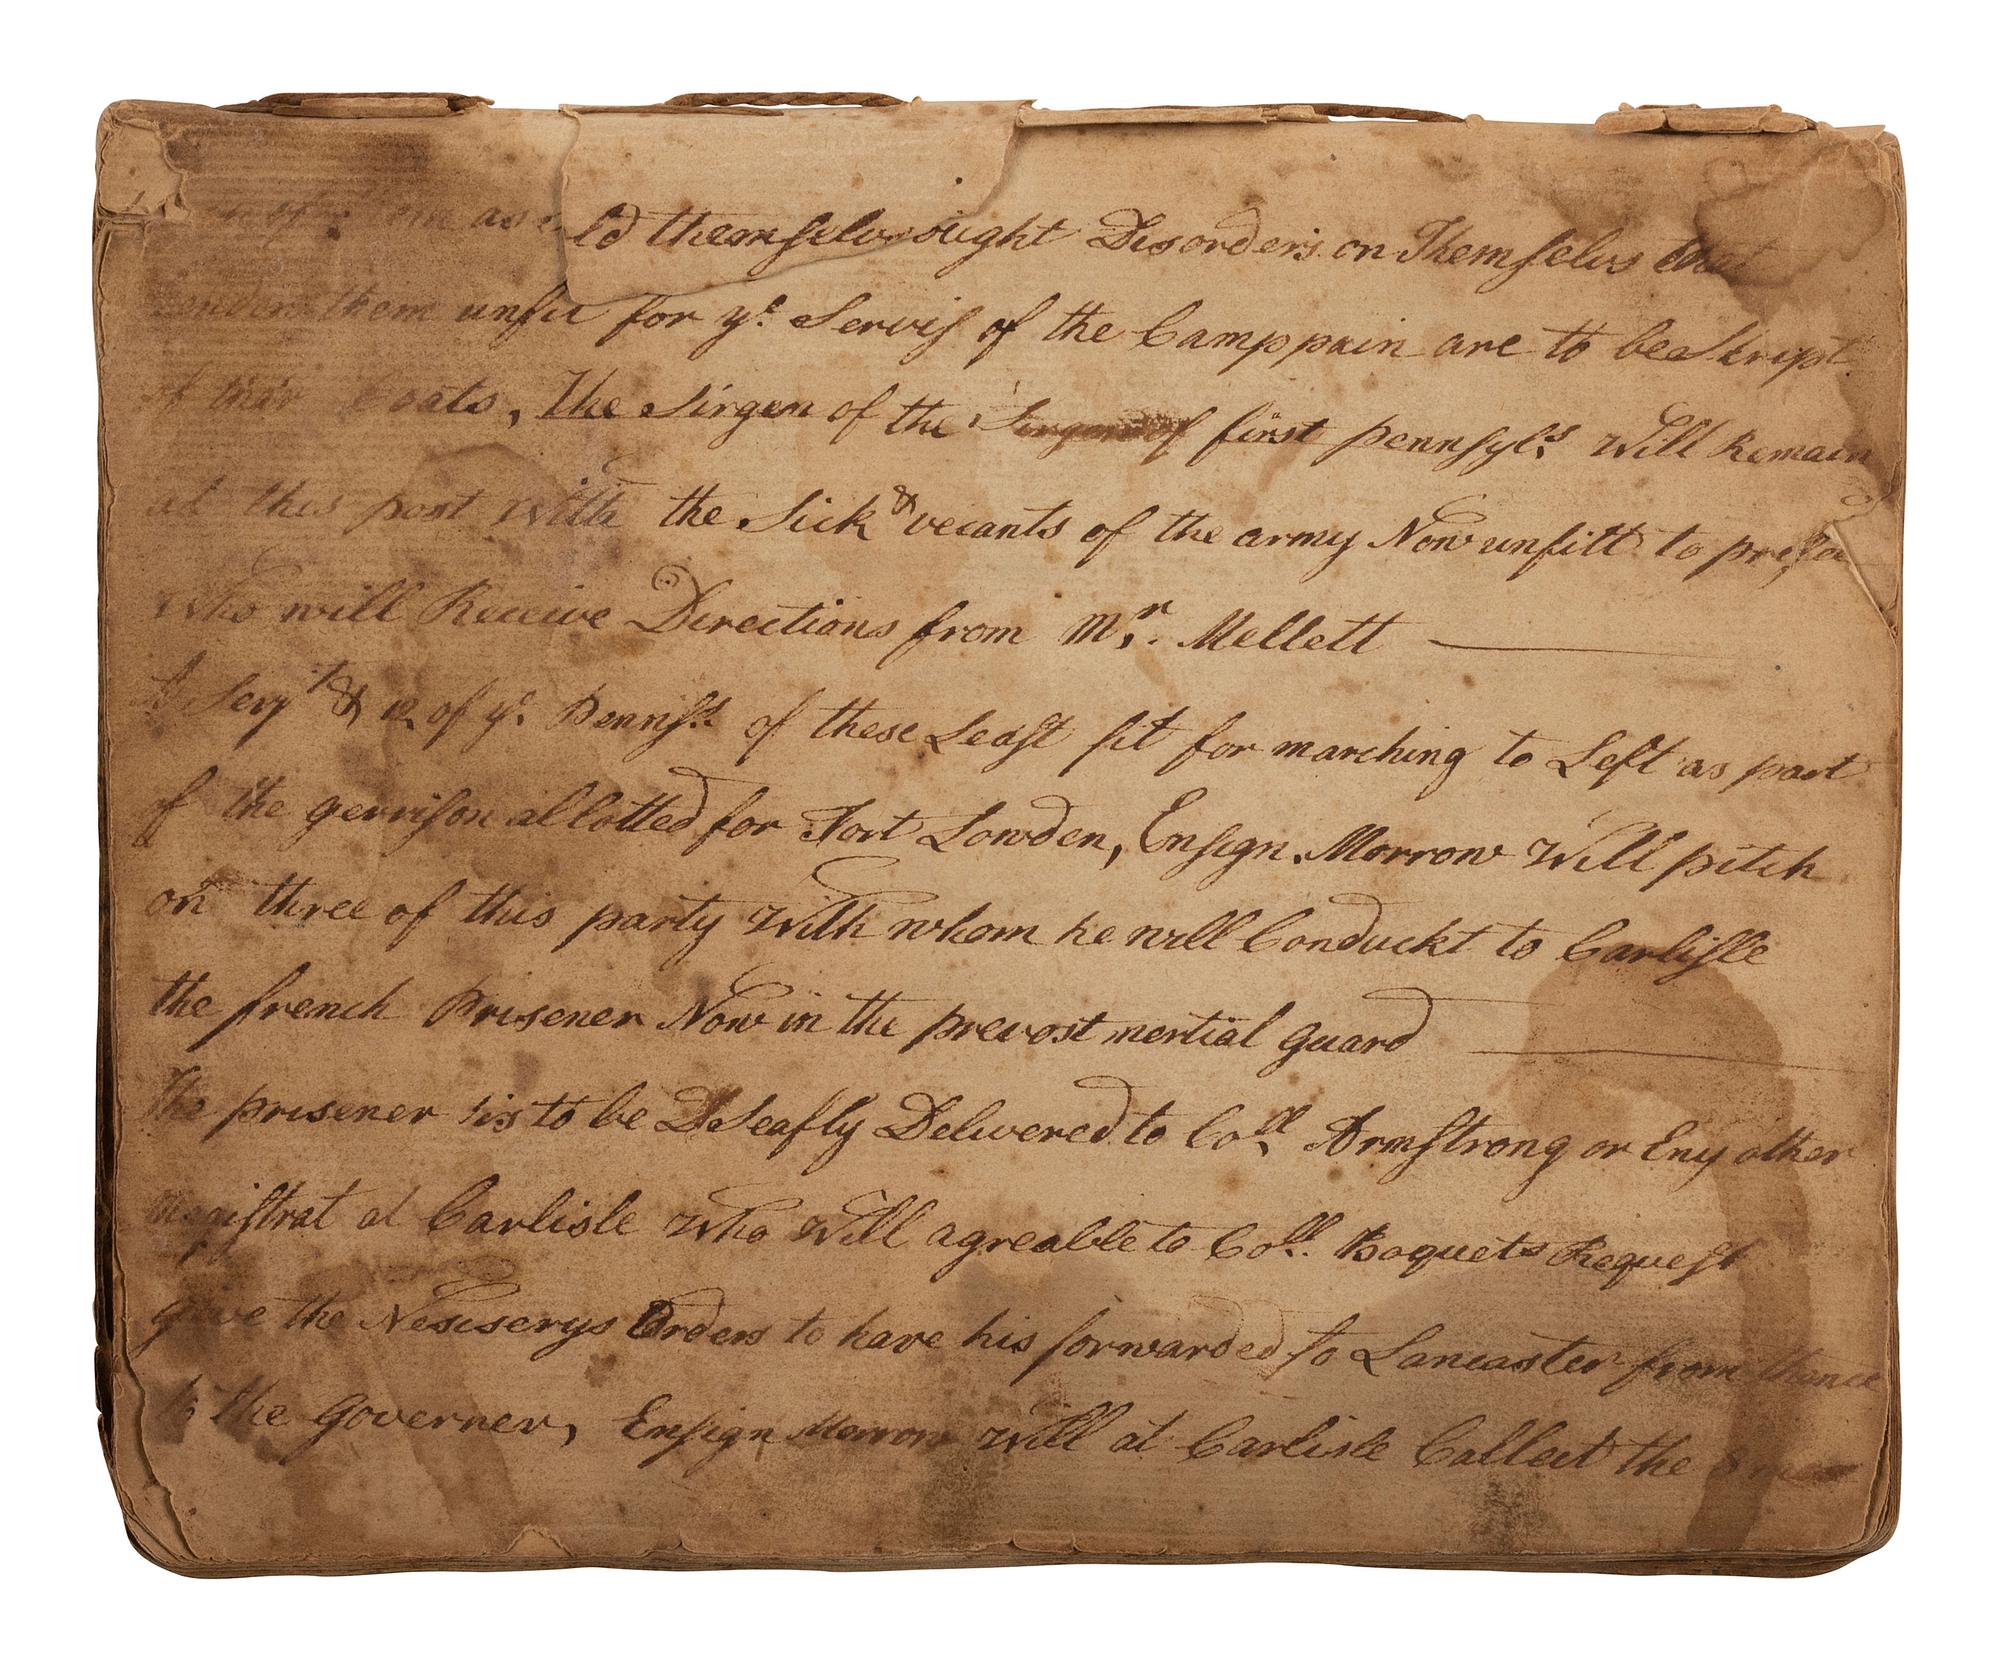 as ld themselvs ought Disorders on Themselvs that
render them unfit for yᵉ Servis of the Camppain are to be Stript
of thir Coats, The Sirgen of the Sirgen of first pennsylˢ will Remain
at this post With the Sick & vecants of the army Now unfitt to
Who will Receive Directions from Mʳ. Mellett
A Serjᵗ & 12 of yᵉ Pennsˢ of these Least fit for marching to Left as part
of the gerrison allotted for Fort Lowden, Ensign Morrow Will pitch
on three of this party With whom he will Conduckt to Carlisle
the french Prisener Now in the prevost mertial guard
The prisener is to be Seafly Delivered to Coˡˡ Armstrong or Eny other
Magistrat at Carlisle Who Will agreable to Coˡˡ Boquets Request
give the Nesisserys Orders to have his forwarded to Lancaster from thence
to the Governer, Ensign Morrow Will at Carlisle Collect the